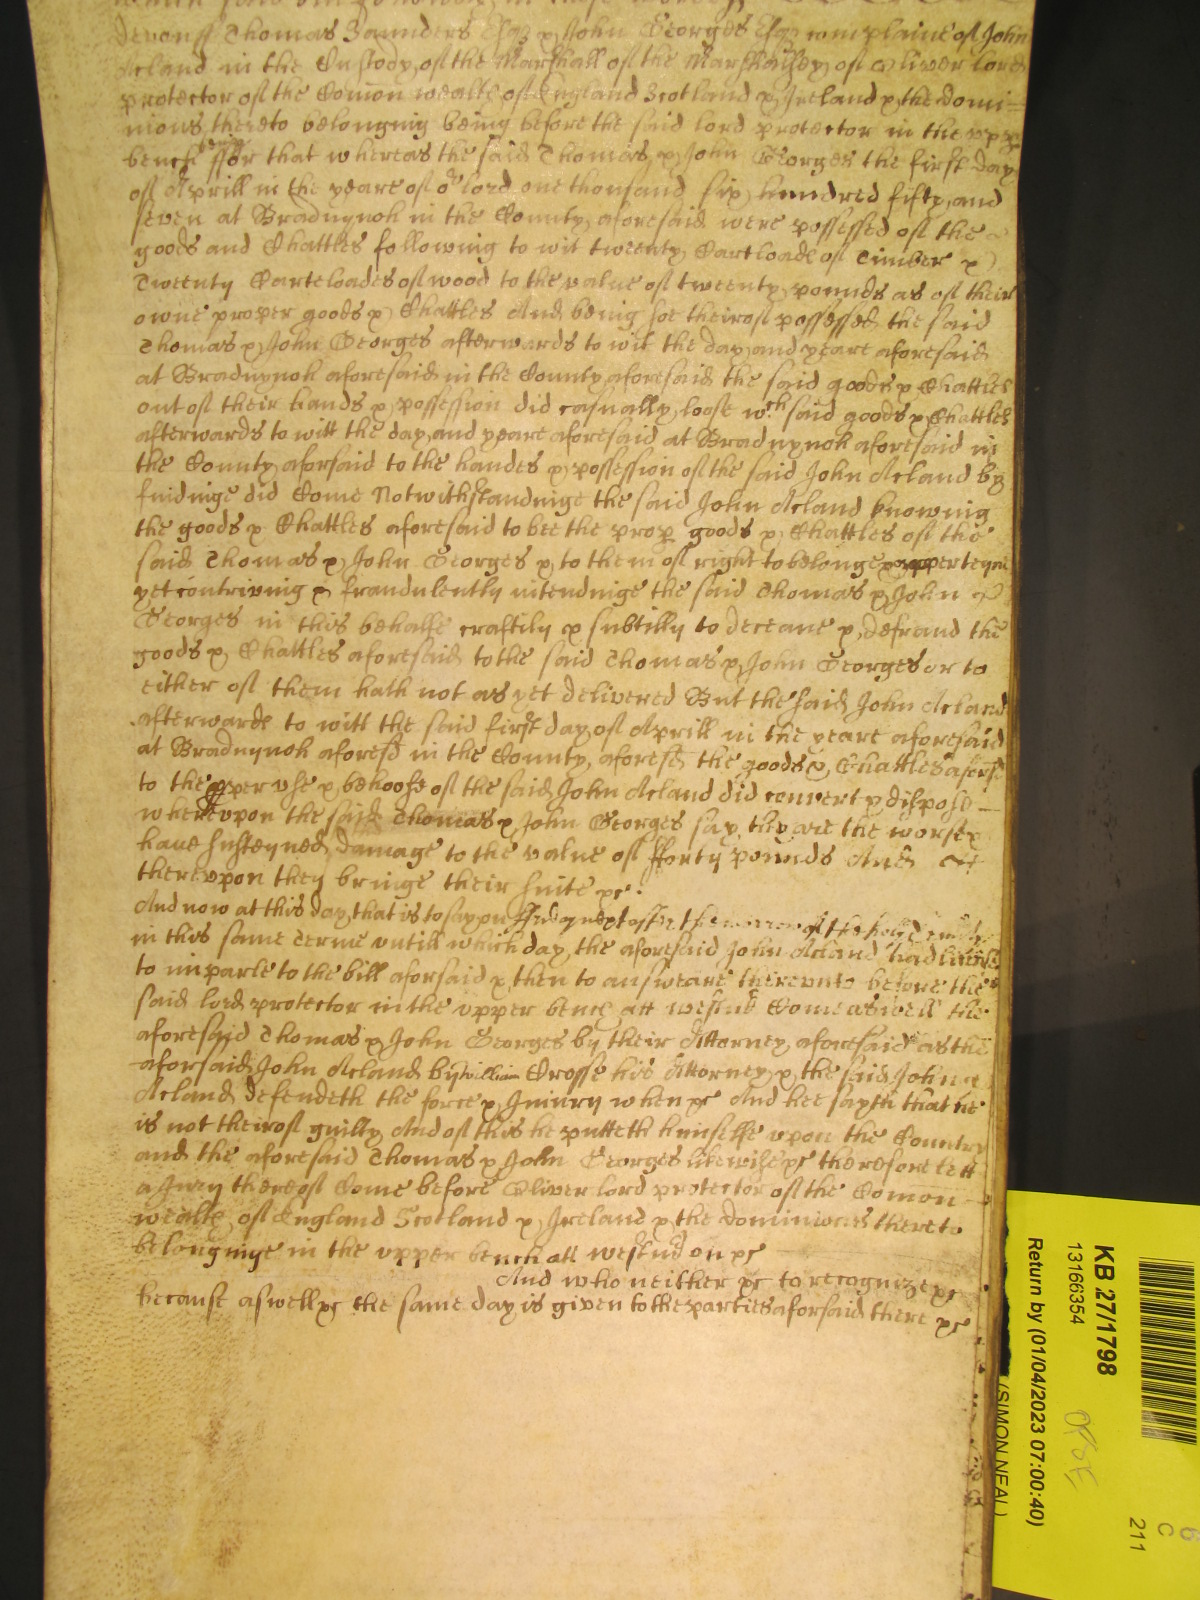 devonss Thomas Saunders Esqr & John Georges Esqr complaine of John
Acland in the Custody of the Marshall of the Marshalsey of Oliver lord
protector of the Comon wealth of England Scotland & Ireland & the domi-
nions thereto belonging being before the said lord protector in the upp
bench ffor that whereas the said Thomas & John Georges the first day
of Aprill in the yeare of or lord one thousand six hundred fifty and
seven at Bradnynch in the County aforesaid were possessed of the
goods and Chattles following to wit twenty Cartloade of Timber &
Twenty Carteloades of wood to the value of twenty pounds as of their
owne proper goods & Chattles And being soe theirof possessed the said
Thomas & John Georges afterwards to wit the day and yeare aforesaid
at Bradnynch aforesaid in the County aforesaid the said goods & Chattles
out of their hands & possession did casually loose wch said goods & Chattles
afterwards to witt the day and yeare aforesaid at Bradnynch aforesaid in
the County aforsaid to the handes & possession of the said John Acland by
findinge did Come Notwithstandinge the said John Acland knowing
the goods & Chattles aforesaid to bee the prop goods & Chattles of the
said Thomas & John Georges & to them of right to belonge & apperteyne
yet contriving & fraudulently intendinge the said Thomas & John
Georges in this behalfe craftily & subtilly to deceave & defraud the
goods & Chattles aforesaid to the said Thomas & John Georges or to
either of them hath not as yet delivered But the said John Acland
afterwards to witt the said first day of Aprill in the yeare aforesaid
at Bradnynch aforesd in the County aforesd the goods & Chattles aforesd
to the pper use & behoofe of the said John Acland did convert & dispose
whereupon the said Thomas & John Georges say they are the worse &
have susteyned damage to the value of fforty pounds And
thereupon they bringe their suite &c.
And now at this day that is to say on ffriday next after the morrow of the holy
in this same terme untill which day the aforesaid John Acland had licence
to imparle to the bill aforsaid & then to answeare thereunto before the
said lord protector in the upper benc att westmr Come aswell the
aforesaid Thomas & John Georges by their Attorney aforesaid as the
aforsaid John Acland by william Crosse his Attorney & the said John
Acland defendeth the force & Iniury when &c And hee sayth that he
is not theirof guilty And of this he putteth himselfe upon the Country
and the aforesaid Thomas & John Georges likewise &c therefore lett
a Jury thereof Come before Oliver lord protector of the Comon
wealth of England Scotland & Ireland & the dominiones thereto
belonginge in the upper bench att westmr on &c
And who neither &c to recognize &c
because aswell &c the same day is given to the parties aforsaid there &c
KB 27/1798
13166354
Return by (01/04/2023 07:00:40)
(SIMON NEAL)
6
C
211